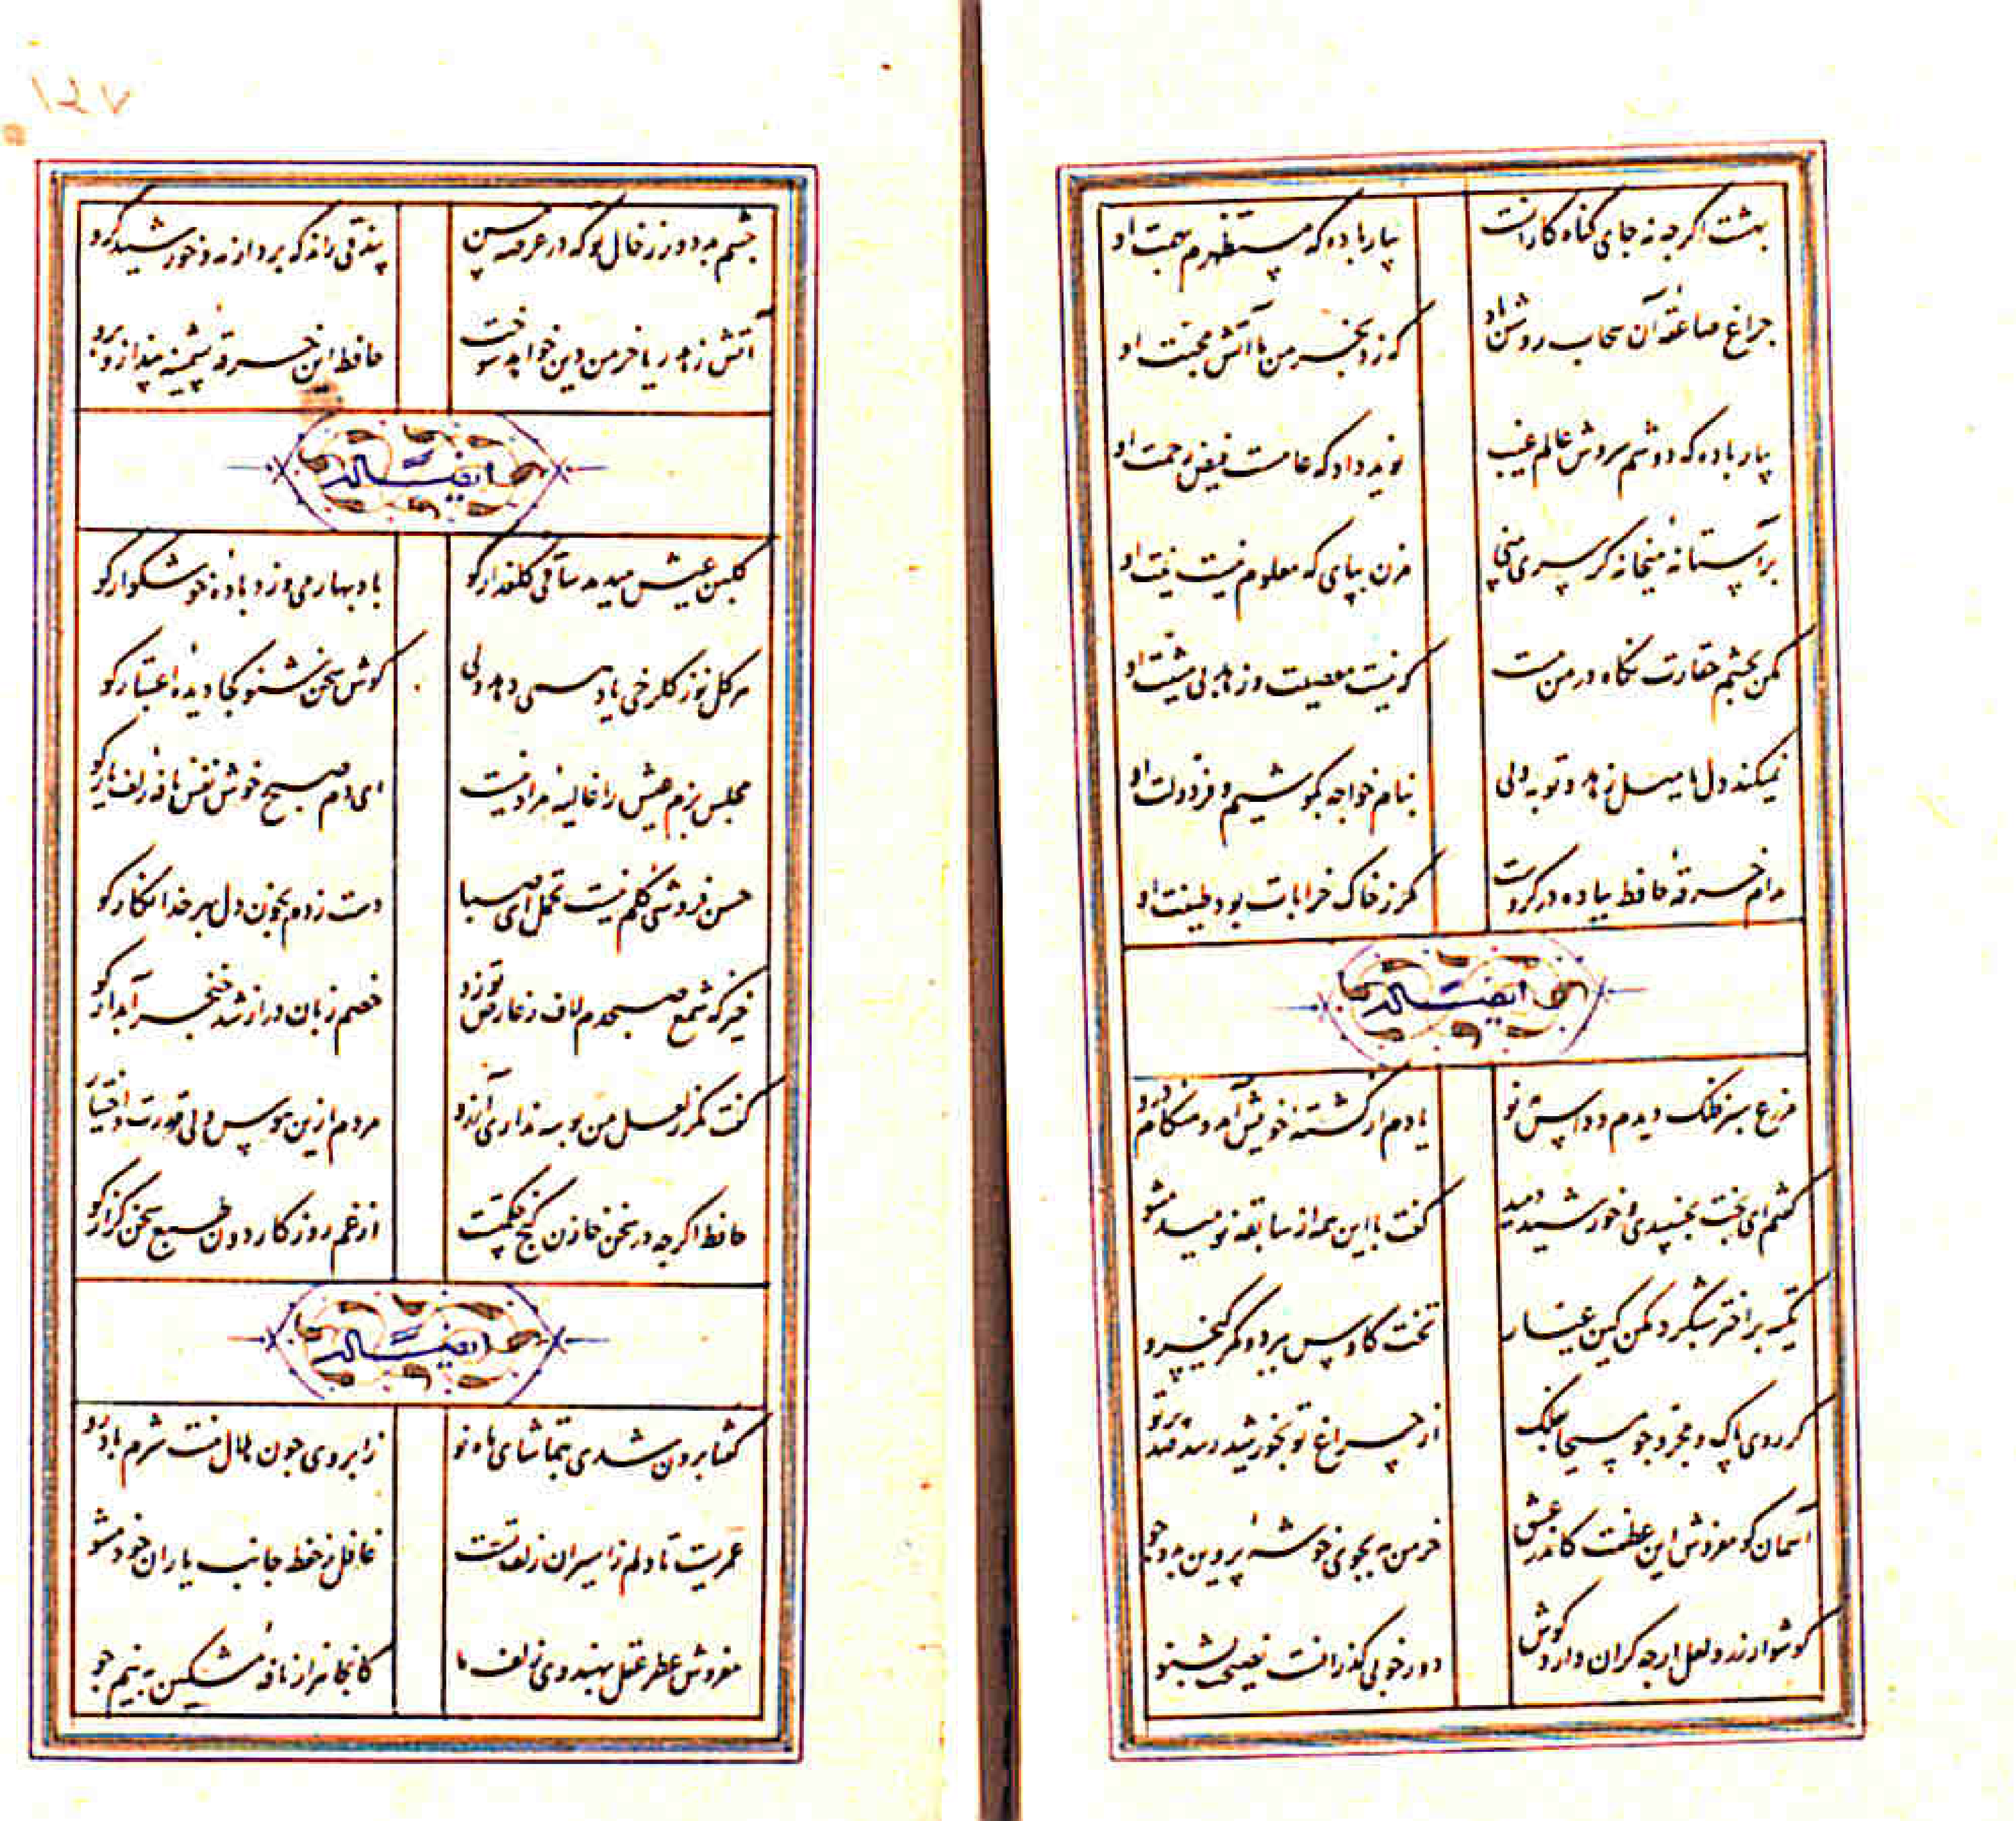 بهشت اگرچه نه جای گناه کارانست
بیار باده که مستظهرم بهمت او
چراغ صاعقهٔ آن سحاب روشن باد
که زد بخرمن ما آتش محبت او
بیار باده که دوشم سروش عالم غیب
نوید داد که عامست فیض رحمت او
بر آستانهٔ میخانه گر سری بینی
مزن بپای که معلوم نیست نیت او
مکن بچشم حقارت نگاه در من مست
که نیست معصیت و زهد بی مشیت او
نمیکند دل ما میل زهد و توبه ولی
بنام خواجه بکوشیم و فر دولت او
مدام خرقهٔ حافظ بباده در گروست
مگر ز خاک خرابات بود طینت او
ایضاً له
مزرع سبز فلک دیدم و داس مه نو
یادم از کشتهٔ خویش آمد و هنگام درو
گفتم ای بخت بخسپیدی و خورشید دمید
گفت با این همه از سابقه نومید مشو
تکیه بر اختر شبگرد مکن کین عیار
تخت کاوس ببرد و کمر کیخسرو
گر روی پاک و مجرد چو مسیحا بفلک
از چراغ تو بخورشید رسد صد پرتو
آسمان گو مفروش این عظمت کاندر عشق
خرمن مه بجوی خوشهٔ پروین بدو جو
گوشوار زر و لعل ارچه گران دارد گوش
دور خوبی گذرانست نصیحت بشنو
چشم بد دور ز خال تو که در عرصهٔ حسن
بیدقی راند که برد از مه و خورشید گرو
آتش زهد ریا خرمن دین خواهد سوخت
حافظ این خرقهٔ پشمینه بینداز و برو
ایضاً له
گلبن عیش میدمد ساقی گلعذار کو
باد بهار می وزد بادهٔ خوشگوار کو
هر گل نو ز گلرخی یاد همی دهد ولی
گوش سخن شنو کجا دیدهٔ اعتبار کو
مجلس بزم عیش را غالیهٔ مراد نیست
ای دم صبح خوش نفس نافهٔ زلف یار کو
حسن فروشی گلم نیست تحمل ای صبا
دست زدم بخون دل بهر خدا نگار کو
خیز که شمع صبحدم لاف ز عارض تو زد
خصم زبان دراز شد خنجر آبدار کو
گفت مگر ز لعل من بوسه نداری آرزو
مردم ازین هوس ولی قدرت و اختیار کو
حافظ اگرچه در سخن خازن گنج حکمتست
از غم روزگار دون طبع سخن گزار کو
ایضاً له
گفتا برون شدی بتماشای ماه نو
از ابروی چون هلال منت شرم باد رو
عمریست تا دلم ز اسیران زلف تست
غافل ز حفظ جانب یاران خود مشو
مفروش عطر عقل بهندوی زلف ما
کانجا هزار نافهٔ مشکین به نیم جو